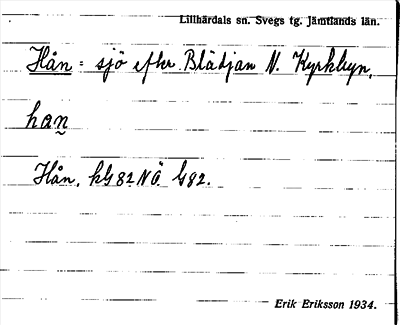 Lillhärdals sn. Svegs tg. Jämtlands län.
Hån = sjö efter Blädjan N. Kyrkbyn.
han̰
Hån, kG82NÖ. G82.
Erik Eriksson 1934.